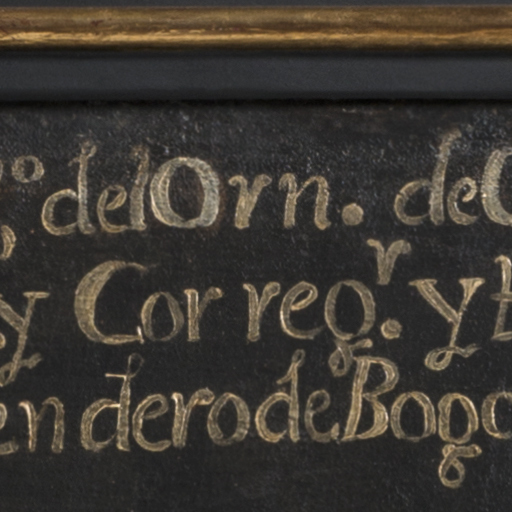 º del Orn. de
y Correg.r y
endero de Bog